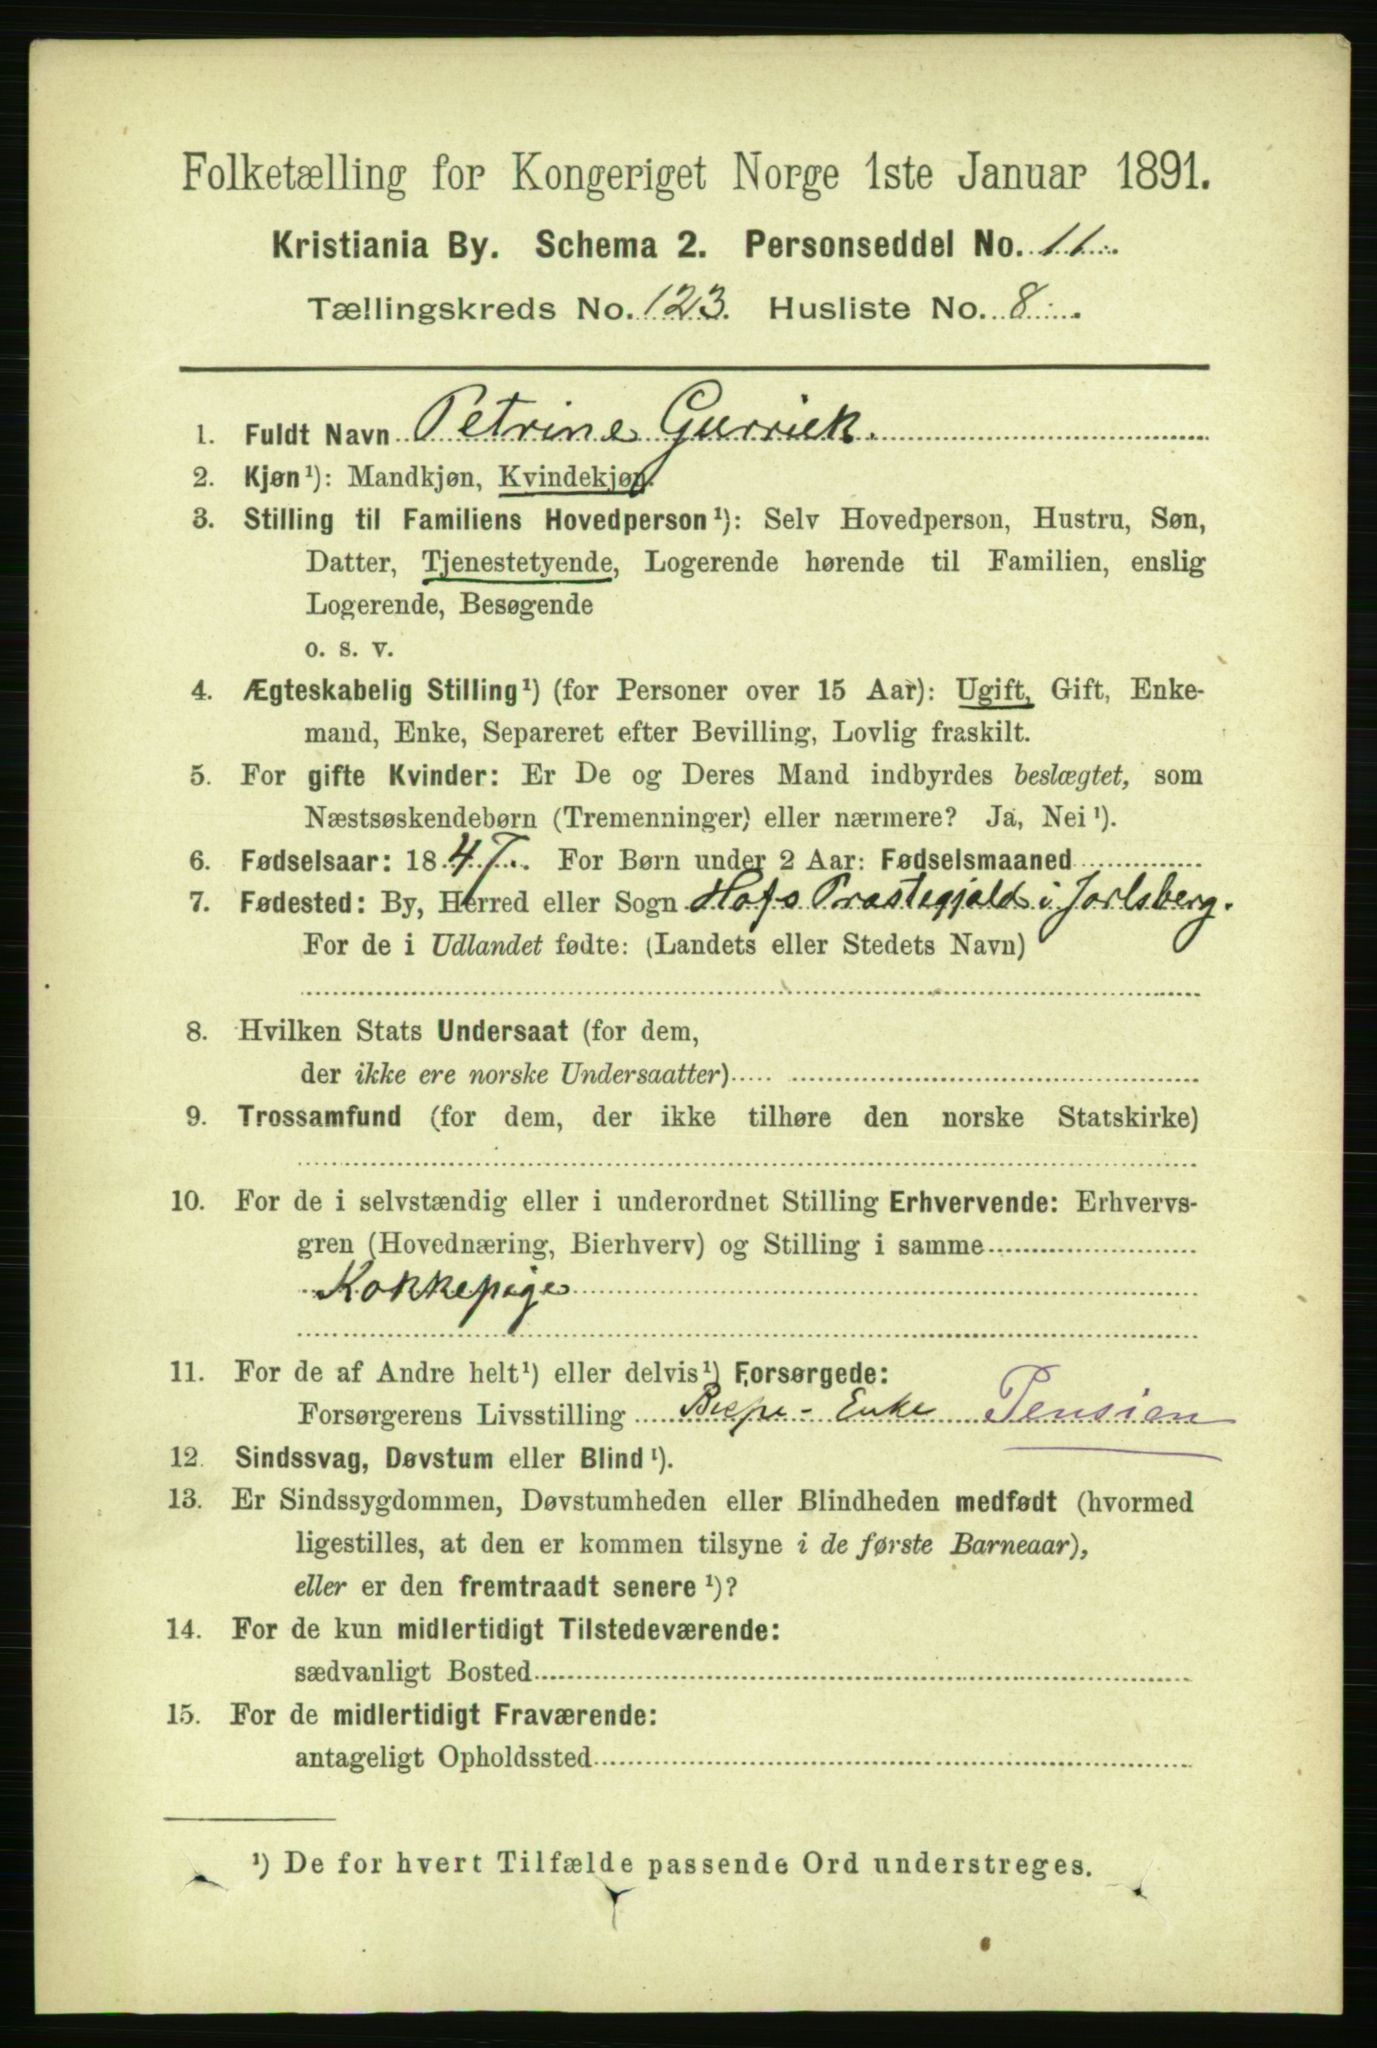 Folketælling for Kongeriget Norge 1ste Januar 1891.
Kristiania By. Schema 2. Personseddel No. 11
Tællingskreds No. 123. Husliste No. 8
1. Fuldt Navn Petrine Gurrick.
2. Kjøn¹): Mandkjøn, Kvindekjøn.
3. Stilling til Familiens Hovedperson¹): Selv Hovedperson, Hustru, Søn,
Datter, Tjenestetyende, Logerende hørende til Familien, enslig
Logerende, Besøgende
o. s. v.
4. Ægteskabelig Stilling¹) (for Personer over 15 Aar): Ugift, Gift, Enke-
mand, Enke, Separeret efter Bevilling, Lovlig fraskilt.
5. For gifte Kvinder: Er De og Deres Mand indbyrdes beslægtet, som
Næstsøskendebørn (Tremenninger) eller nærmere? Ja, Nei¹).
6. Fødselsaar: 1847. For Børn under 2 Aar: Fødselsmaaned
7. Fødested: By, Herred eller Sogn Hofs Præstegjeld i Jarlsberg.
For de i Udlandet fødte: (Landets eller Stedets Navn)
8. Hvilken Stats Undersaat (for dem,
der ikke ere norske Undersaatter)
9. Trossamfund (for dem, der ikke tilhøre den norske Statskirke)
10. For de i selvstændig eller i underordnet Stilling Erhvervende: Erhvervs-
gren (Hovednæring, Bierhverv) og Stilling i samme
Kokkepige
11. For de af Andre helt¹) eller delvis¹) Forsørgede:
Forsørgerens Livsstilling Bispe-Enke Pension
12. Sindssvag, Døvstum eller Blind¹).
13. Er Sindssygdommen, Døvstumheden eller Blindheden medfødt (hvormed
ligestilles, at den er kommen tilsyne i de første Barneaar),
eller er den fremtraadt senere¹)?
14. For de kun midlertidigt Tilstedeværende:
sædvanligt Bosted
15. For de midlertidigt Fraværende:
antageligt Opholdssted
¹) De for hvert Tilfælde passende Ord understreges.